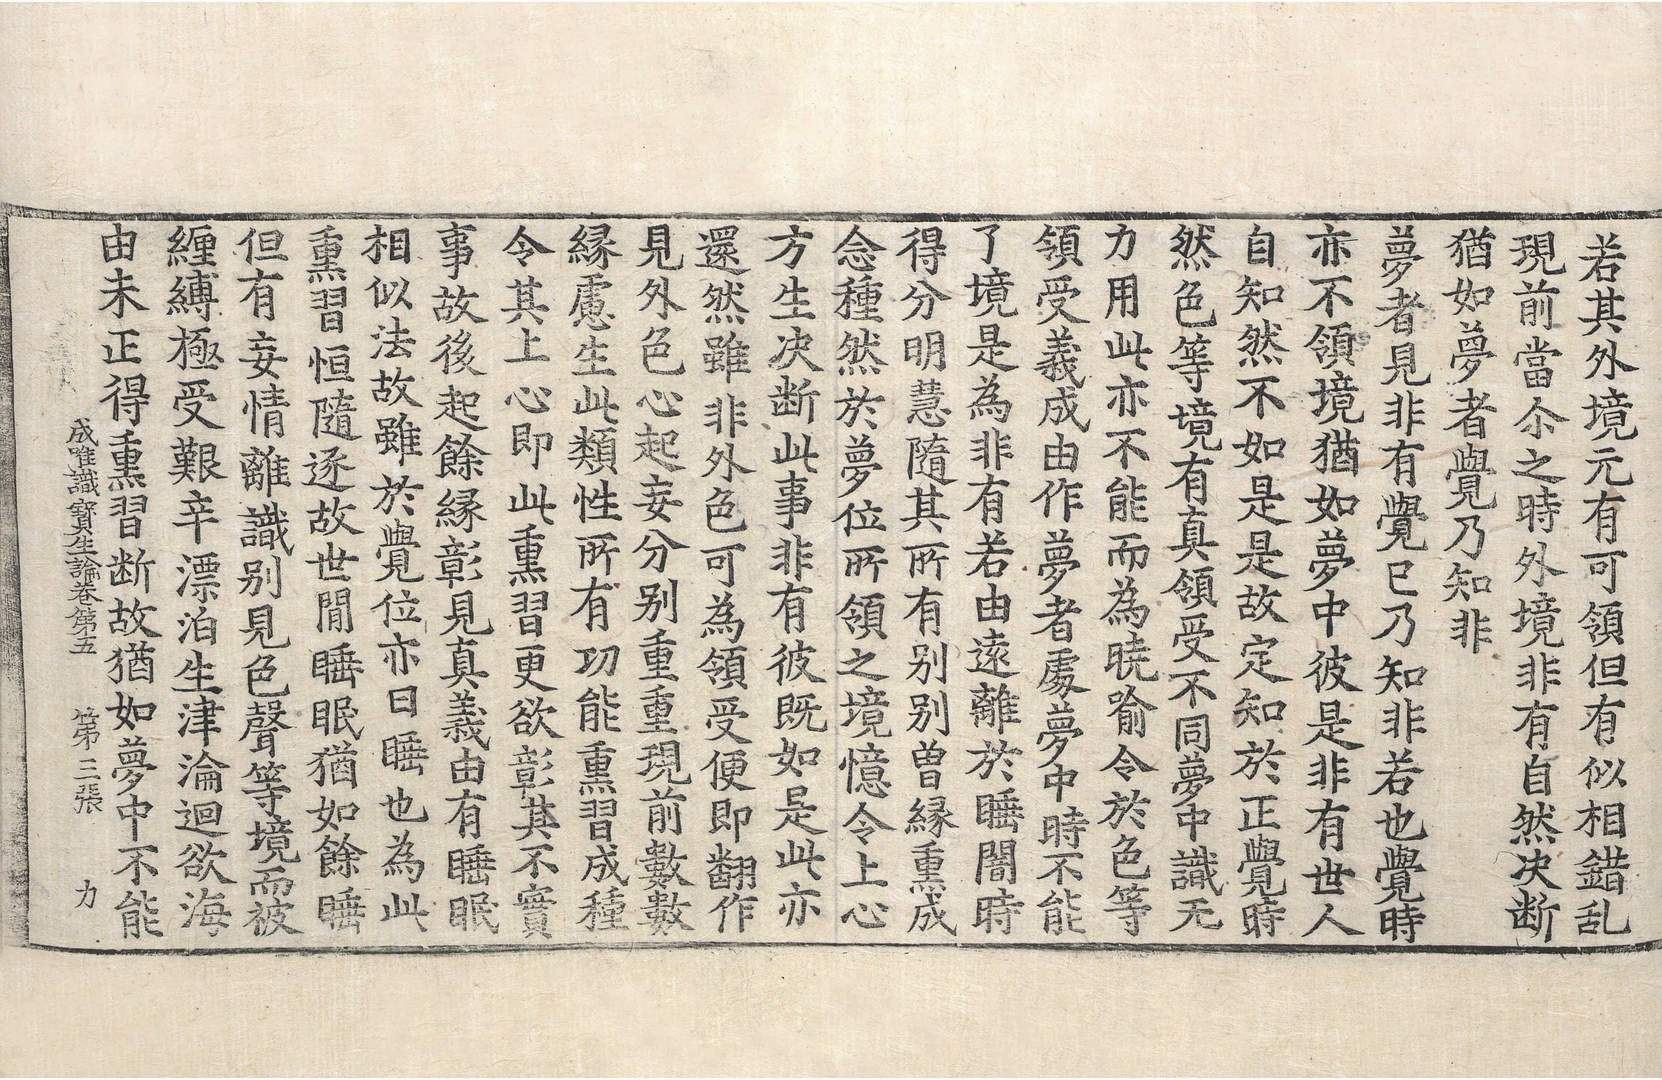 若其外境元有可領但有似相錯乱
現前當尒之時外境非有自然决断
猶如夢者覺乃知非
夢者見非有覺已乃知非若也覺時
亦不領境猶如夢中彼是非有世人
自知然不如是是故定知於正覺時
然色等境有真領受不同夢中識无
力用此亦不能而為曉喻令於色等
領受義成由作夢者處夢中時不能
了境是為非有若由遠離於睡闇時
得分明慧隨其所有别别曽緣熏成
念種然於夢位所領之境憶令上心
方生决断此事非有彼既如是此亦
還然雖非外色可為領受便即翻作
見外色心起妄分别重重現前數數
緣慮生此類性所有功能熏習成種
令其上心即此熏習更欲彰其不實
事故後起餘緣彰見真義由有睡眠
相似法故雖於覺位亦曰睡也為此
熏習恒隨逐故世間睡眠猶如餘睡
但有妄情離識别見色聲等境而被
纏縛極受艱辛漂泊生津淪迴欲海
由未正得熏習断故猶如夢中不能
成唯識寶生論卷第五 第三張 力